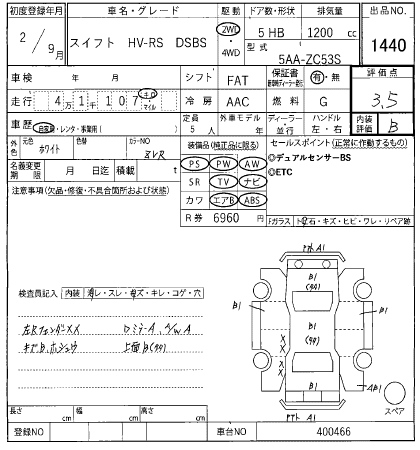 初度登録年月 車名・グレード 駆動 ドア数・形状 排気量 出品NO.
2/9月 スイフト HV-RS DSBS 2WD ・4WD 5 HB 1200 cc 1440
型式 5AA-ZC53S
車検 年 月 シフト FAT 保証書 有・無 評価点
走行 4万1千107 キロ マイル 冷房 AAC 燃料 G 3.5
車歴 自家用・レンタ・事業用( ) 定員 5人 外車モデル 年 ディーラー・並行 ハンドル 左・右 内装評価 B
外色 元色 ホワイト 色替 カラーNO ZVR 装備品(純正品に限る) セールスポイント(正常に作動するもの)
名義変更期限 月 日迄 積載 t PS PW AW ◎デュアルセンサーBS
注意事項(欠品・修復・不具合箇所および状態) SR TV ナビ ◎ETC
カワ エアB ABS
R券 6960円 Fガラス 石・キズ・ヒビ・ワレ・リペア跡
検査員記入 内装 スレ・キズ・キレ・コゲ・穴
A1
B1
B1
B1
A1
長さ cm 幅 cm 高さ cm スペア
登録NO 車台NO 400466